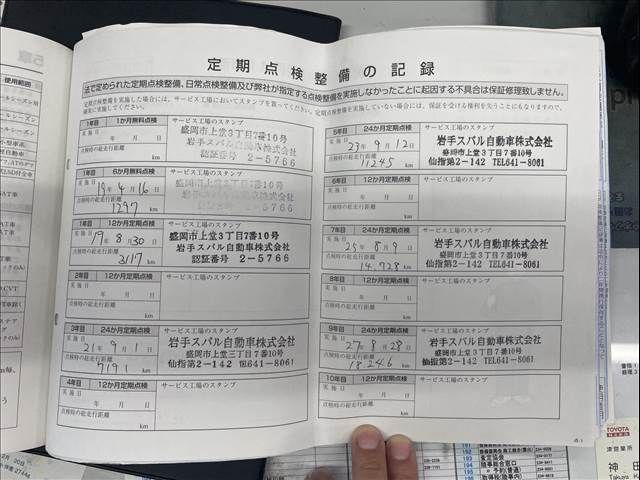 定期点検整備の記録
法で定められた定期点検整備、日常点検整備及び弊社が指定する点検整備を実施しなかったことに起因する不具合は保証修理致しません。
定期点検を実施した場合には、サービス工場においてスタンプを貰ってください。定期点検を実施していない場合には、保証を受ける権利を失うこともありますので、
確実に実施してください。
1年目 1か月無料点検 サービス工場のスタンプ
実施日 年 月 日
点検時の総走行距離
km
盛岡市上堂3丁目7番10号
岩手スバル自動車株式会社
認証番号 2-5766
1年目 6か月無料点検 サービス工場のスタンプ
実施日 19年 4月 16日
点検時の総走行距離
1297 km
盛岡市上堂3丁目7番10号
岩手スバル自動車株式会社
2-5766
1年目 12か月定期点検 サービス工場のスタンプ
実施日 19年 8月 30日
点検時の総走行距離
3117 km
盛岡市上堂3丁目7番10号
岩手スバル自動車株式会社
認証番号 2-5766
2年目 12か月定期点検 サービス工場のスタンプ
実施日 年 月 日
点検時の総走行距離
km
3年目 24か月定期点検 サービス工場のスタンプ
実施日 21年 9月 1日
点検時の総走行距離
7191 km
岩手スバル自動車株式会社
盛岡市上堂三丁目7番10号
仙指第2-142 ℡641-8061
4年目 12か月定期点検 サービス工場のスタンプ
実施日 年 月 日
点検時の総走行距離
km
5年目 24か月定期点検 サービス工場のスタンプ
実施日 23年 9月 12日
点検時の総走行距離
11245 km
岩手スバル自動車株式会社
盛岡市上堂3丁目7番10号
仙指第2-142 TEL641-8061
6年目 12か月定期点検 サービス工場のスタンプ
実施日 年 月 日
点検時の総走行距離
km
7年目 24か月定期点検 サービス工場のスタンプ
実施日 25年 8月 9日
点検時の総走行距離
14,728 km
岩手スバル自動車株式会社
盛岡市上堂3丁目7番10号
仙指第2-142 TEL641-8061
8年目 12か月定期点検 サービス工場のスタンプ
実施日 年 月 日
点検時の総走行距離
km
9年目 24か月定期点検 サービス工場のスタンプ
実施日 27年 8月 28日
点検時の総走行距離
18246 km
岩手スバル自動車株式会社
盛岡市上堂3丁目7番10号
仙指第2-142 TEL641-8061
10年目 12か月定期点検 サービス工場のスタンプ
実施日 年 月 日
点検時の総走行距離
km
使用範囲
TOYOTA
津志田
神田